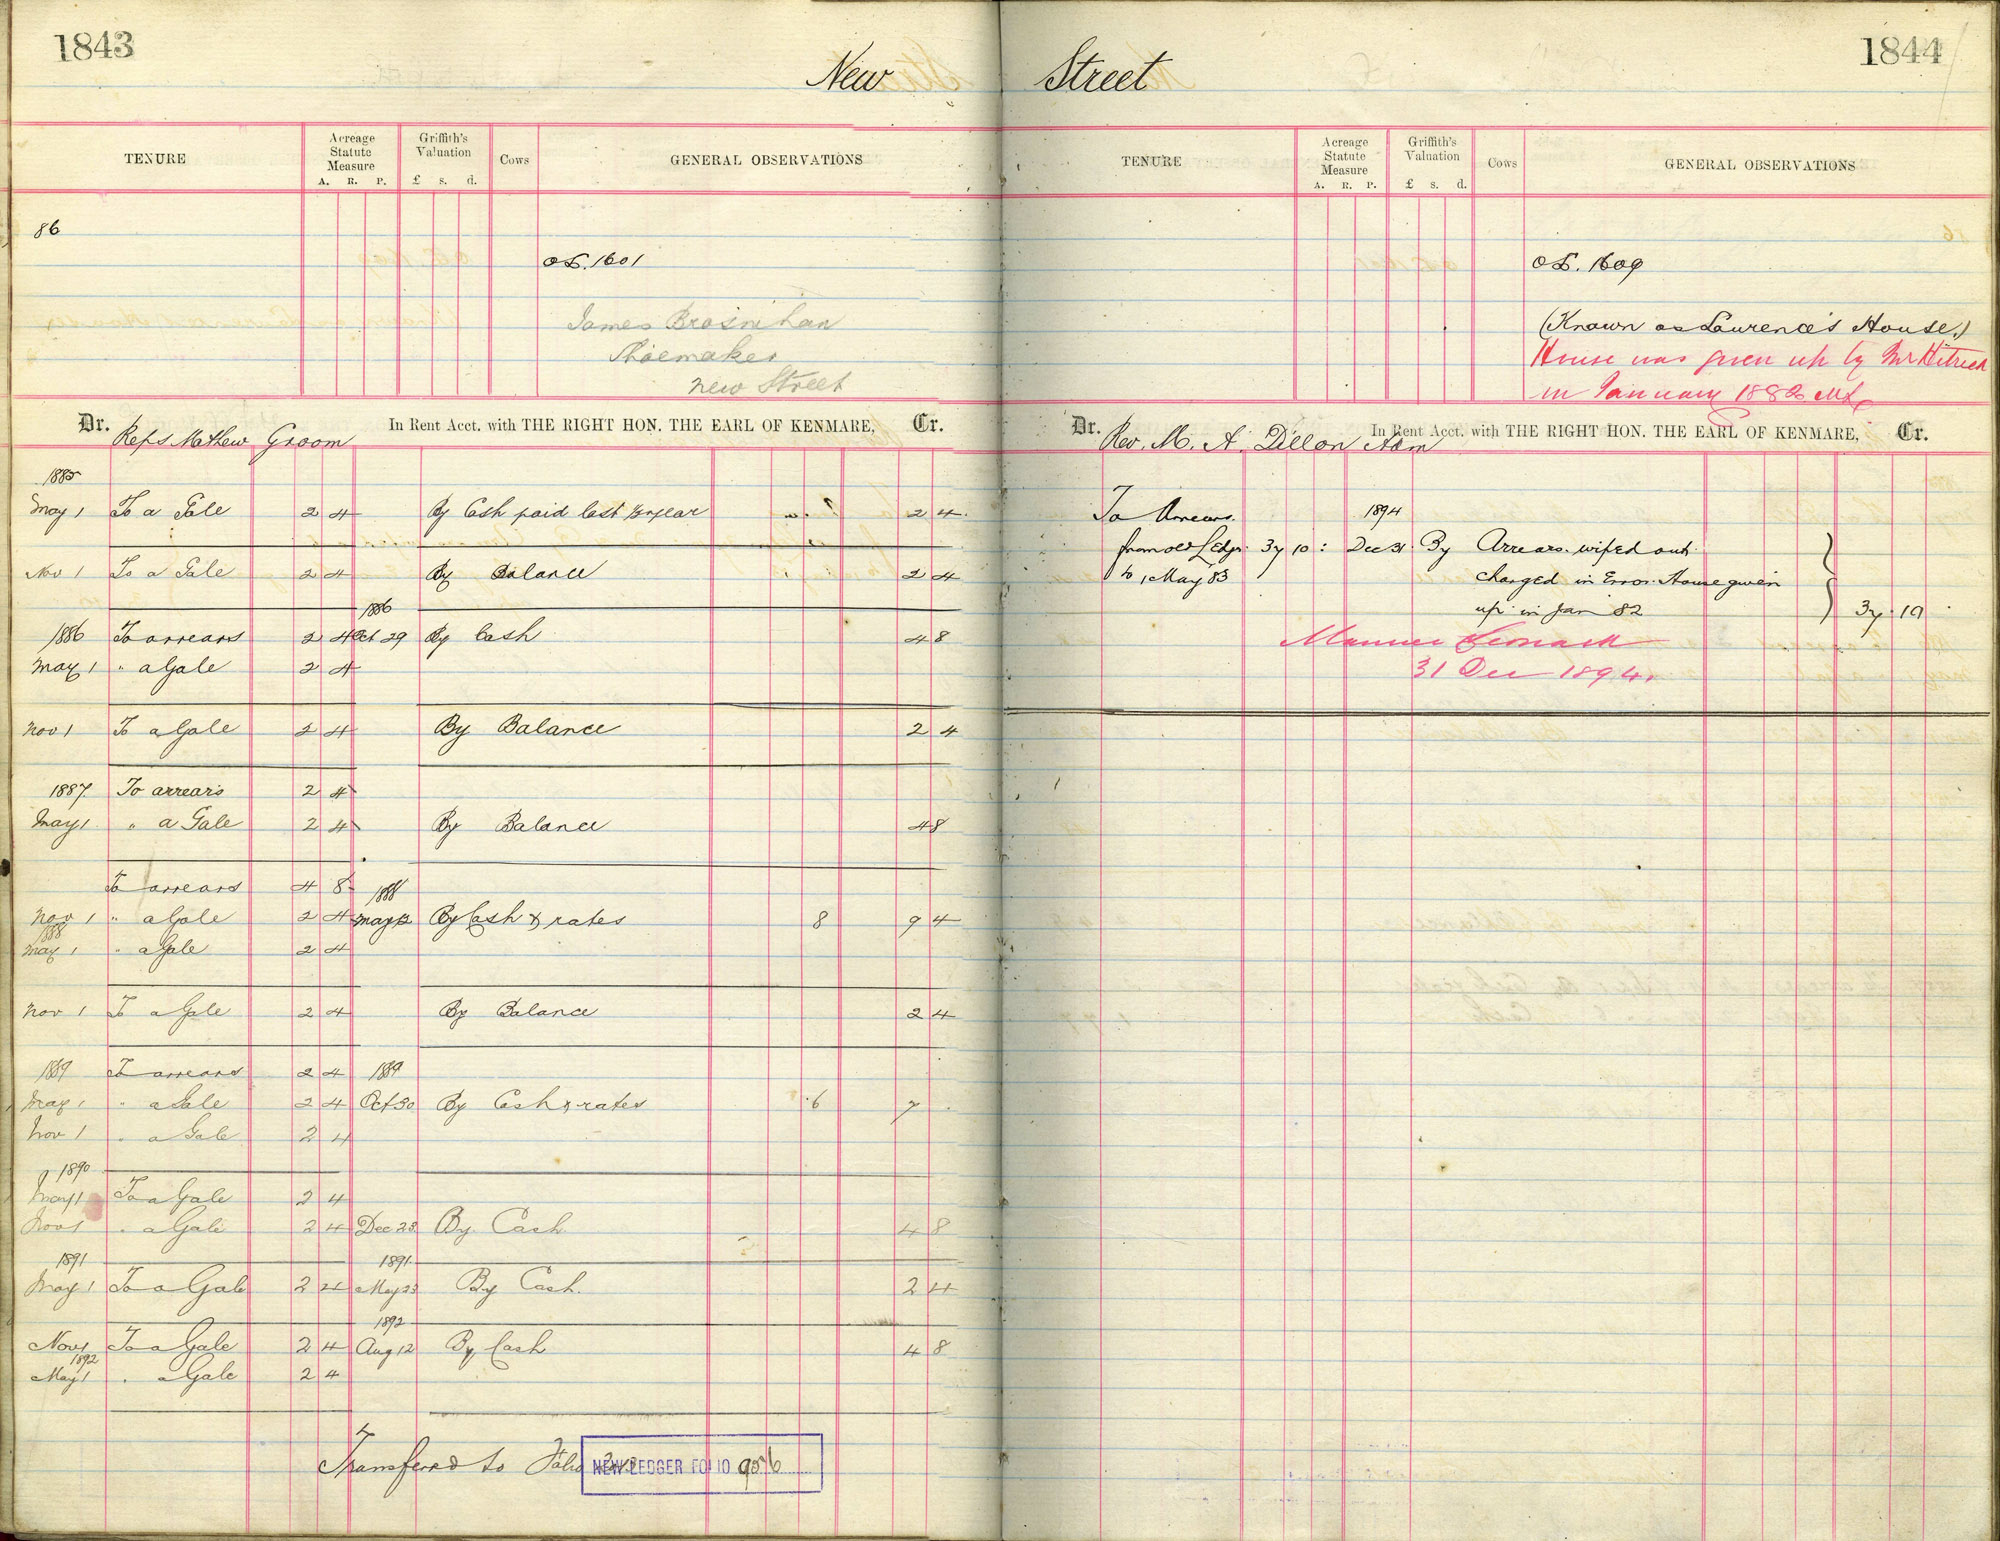 1843
New Street
1844
TENURE
Acreage Statute Measure
A. R. P.
Griffith's Valuation
£ s. d.
Cows
GENERAL OBSERVATIONS
86
OL. 1601
James Brosnihan
Shoemaker
New Street
Dr. Reps Mathew Groom In Rent Acct. with THE RIGHT HON. THE EARL OF KENMARE, Cr.
1885
May 1 To a Gale 2 4 By Cash paid last ½ year 2 4
Nov 1 To a Gale 2 4 By Balance 2 4
1886
1886 To arrears 2 4 Oct 29 By Cash 4 8
May 1 " a Gale 2 4
Nov 1 To a Gale 2 4 By Balance 2 4
1887 To arrears 2 4
May 1 " a Gale 2 4 By Balance 4 8
To arrears 4 8 1888
Nov 1 " a Gale 2 4 May 12 By Cash & rates 8 9 4
1888
May 1 " a Gale 2 4
Nov 1 To a Gale 2 4 By Balance 2 4
1889 To arrears 2 4 1889
May 1 " a Gale 2 4 Oct 30 By Cash & rates 6 7
Nov 1 " a Gale 2 4
1890
May 1 To a Gale 2 4
Nov 1 " a Gale 2 4 Dec 23 By Cash 4 8
1891 1891
May 1 To a Gale 2 4 May 23 By Cash. 2 4
1892
Nov 1 To a Gale 2 4 Aug 12 By Cash 4 8
1892
May 1 " a Gale 2 4
Transferred to Folio
NEW LEDGER FOLIO 956
TENURE
Acreage Statute Measure
A. R. P.
Griffith's Valuation
£ s. d.
Cows
GENERAL OBSERVATIONS
OL. 1609
(Known as Lawrence's House.)
House was given up by Mr
in January 1882
Dr. Rev. M. A. Dillon Adm In Rent Acct. with THE RIGHT HON. THE EARL OF KENMARE, Cr.
To Arrears 1894
from old Ledgr 37 10 : Dec 31 By Arrears wiped out
to 1 May 83 charged in Error. House given
up in Jan 82 37 10
Maurice Leonard
31 Dec 1894.